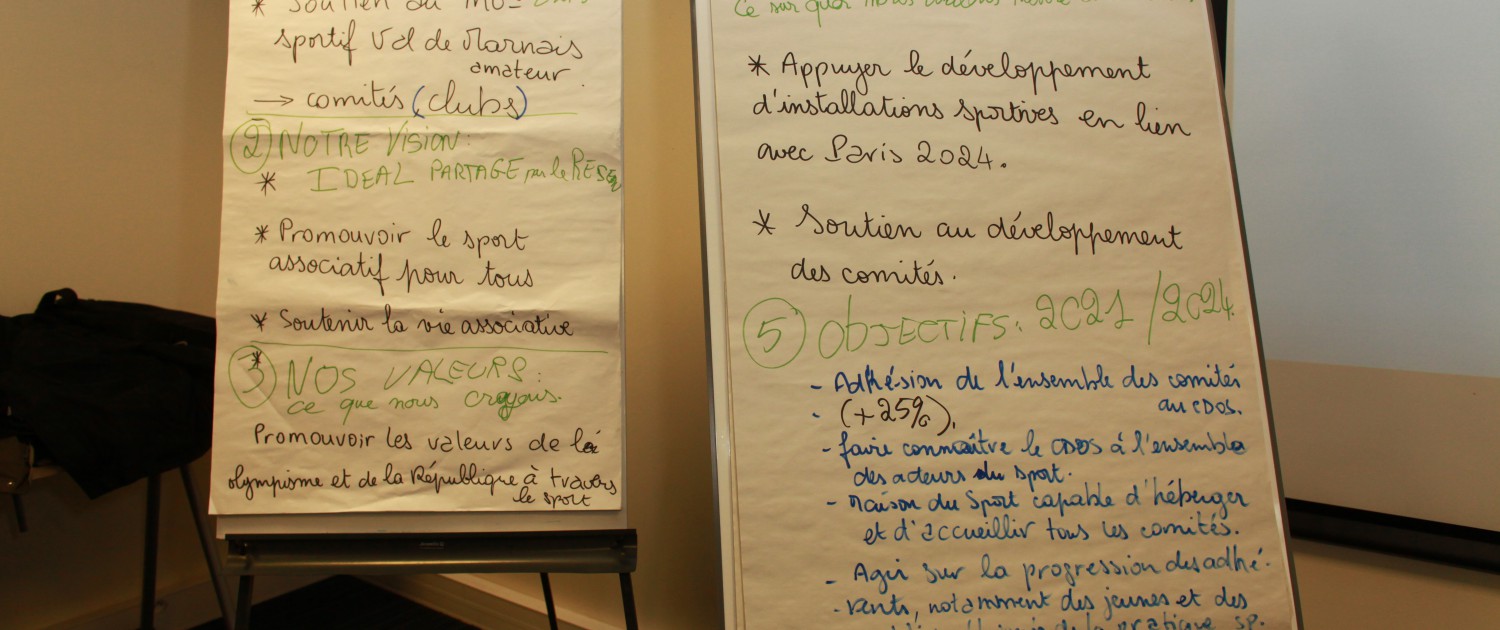 * Soutien au
sportif Val de Marnais
amateur
→ comités (clubs)
② NOTRE VISION:
* IDEAL PARTAGE par le RESE
* Promouvoir le sport
associatif pour tous
* Soutenir la vie associative
*
③ NOS VALEURS:
ce que nous croyons.
Promouvoir les valeurs de la
olympisme et de la République à travers
le sport
Ce sur quoi nous
* Appuyer le développement
d'installations sportives en lien
avec Paris 2024.
* Soutien au développement
des comités.
⑤ OBJECTIFS: 2021/2024.
- Adhésion de l'ensemble des comités
au CDOS.
- (+25%).
- faire connaître le CDOS à l'ensemble
des acteurs du sport.
- Maison du Sport capable d'héberger
et d'accueillir tous les comités.
- Agir sur la progression des adhé-
- rents, notamment des jeunes et des
de la pratique sp.